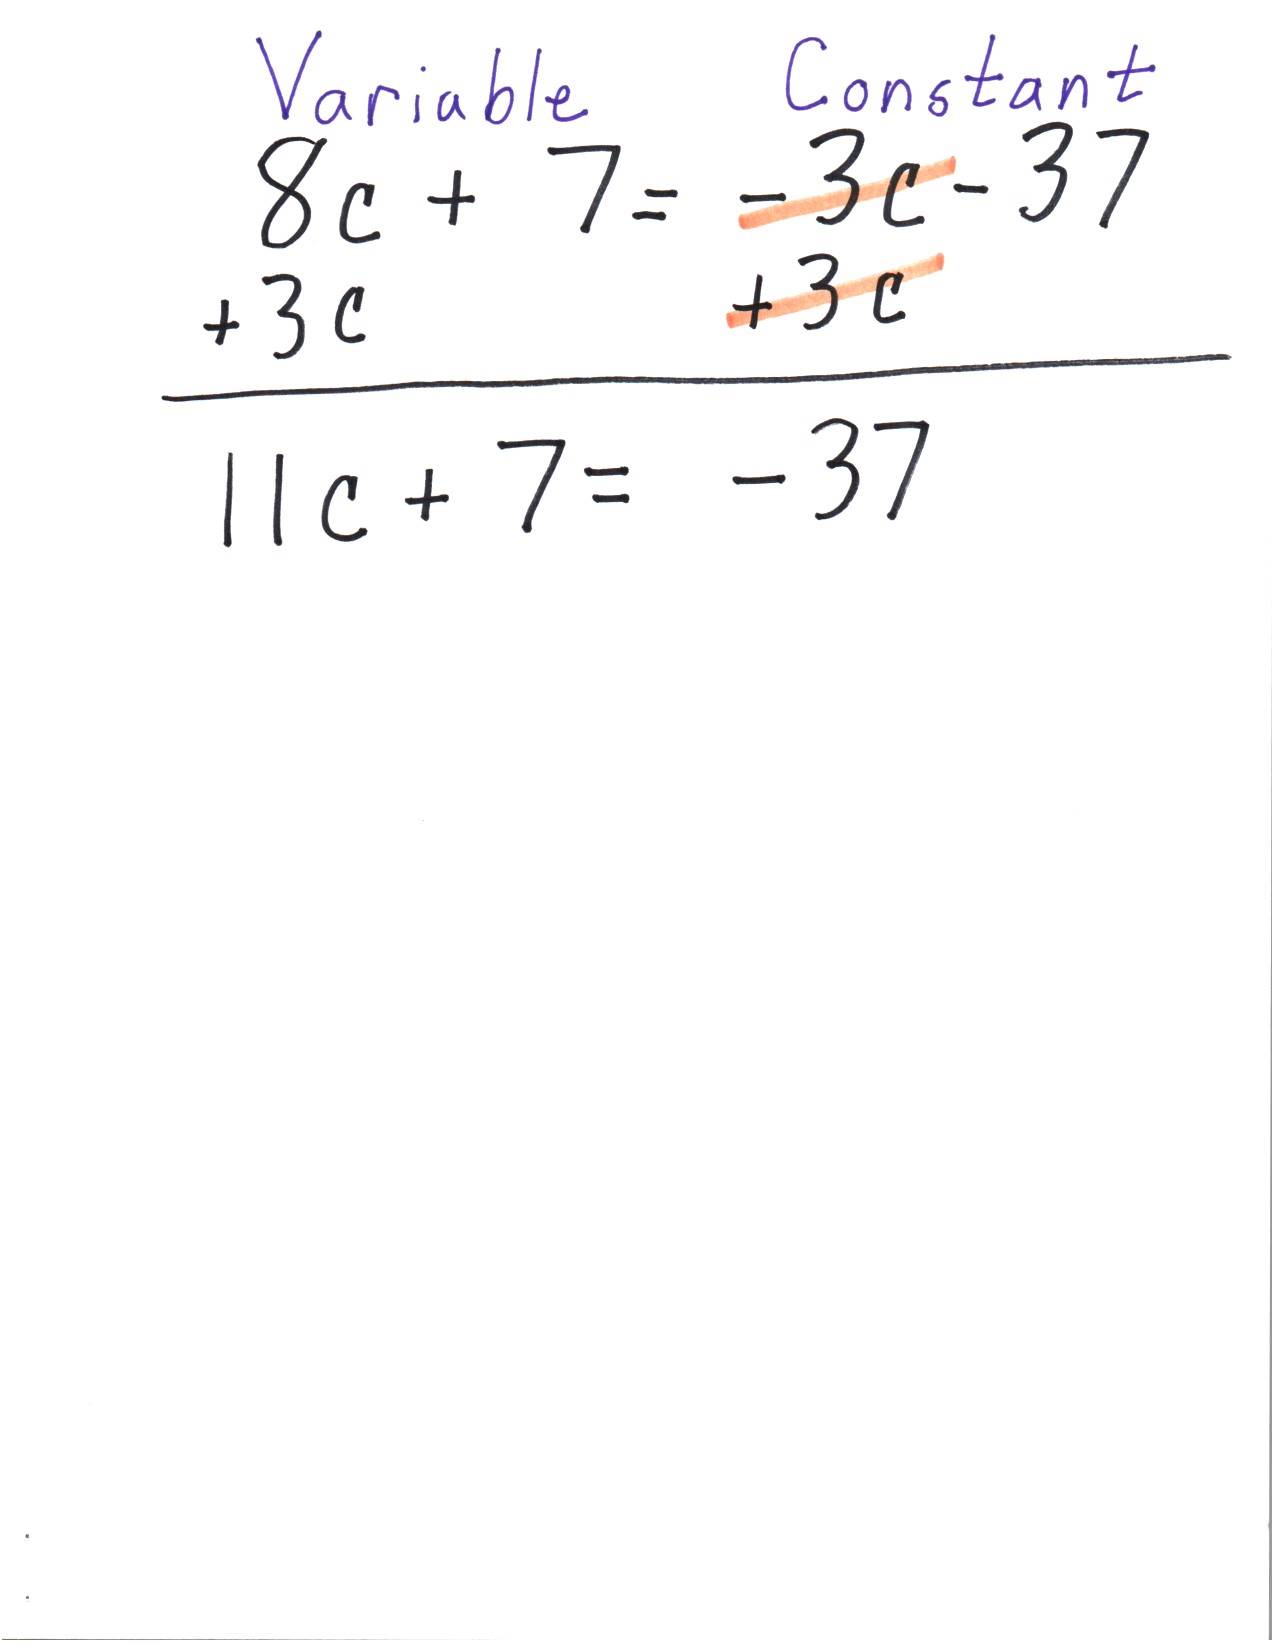 Variable Constant
8c + 7 = -3c - 37
+3c +3c
11c + 7 = -37